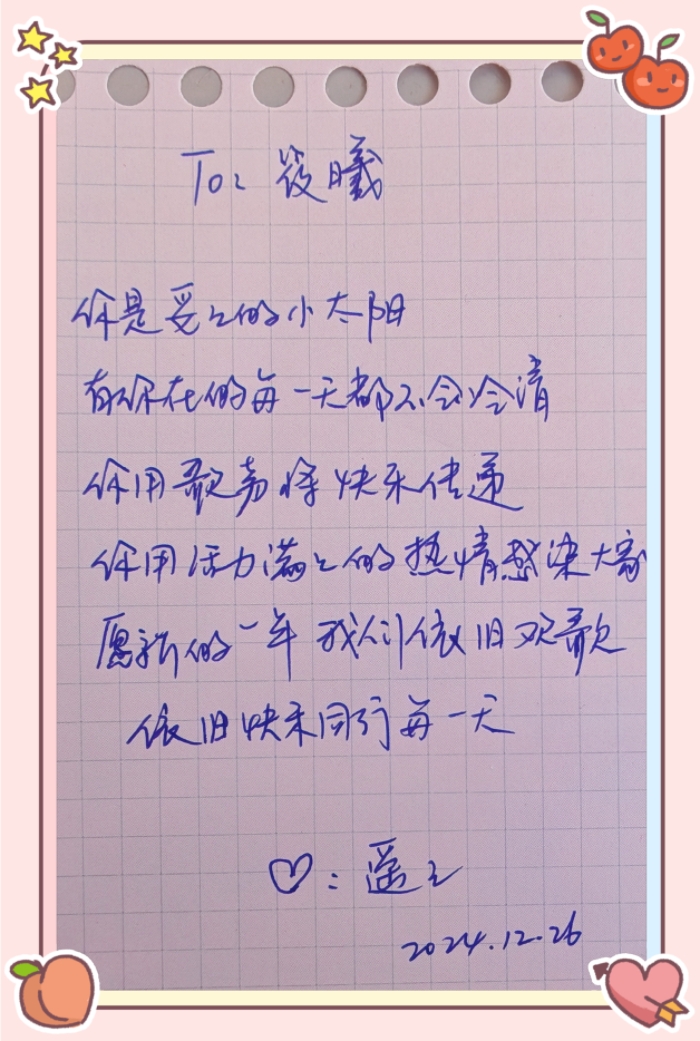 To: 筱曦
你是爱々的小太阳
有你在的每一天都不会冷清
你用歌声将快乐传递
你用活力满々的热情感染大家
愿新的一年 我们依旧欢歌
依旧快乐同行每一天
♡: 遥々
2024.12.26